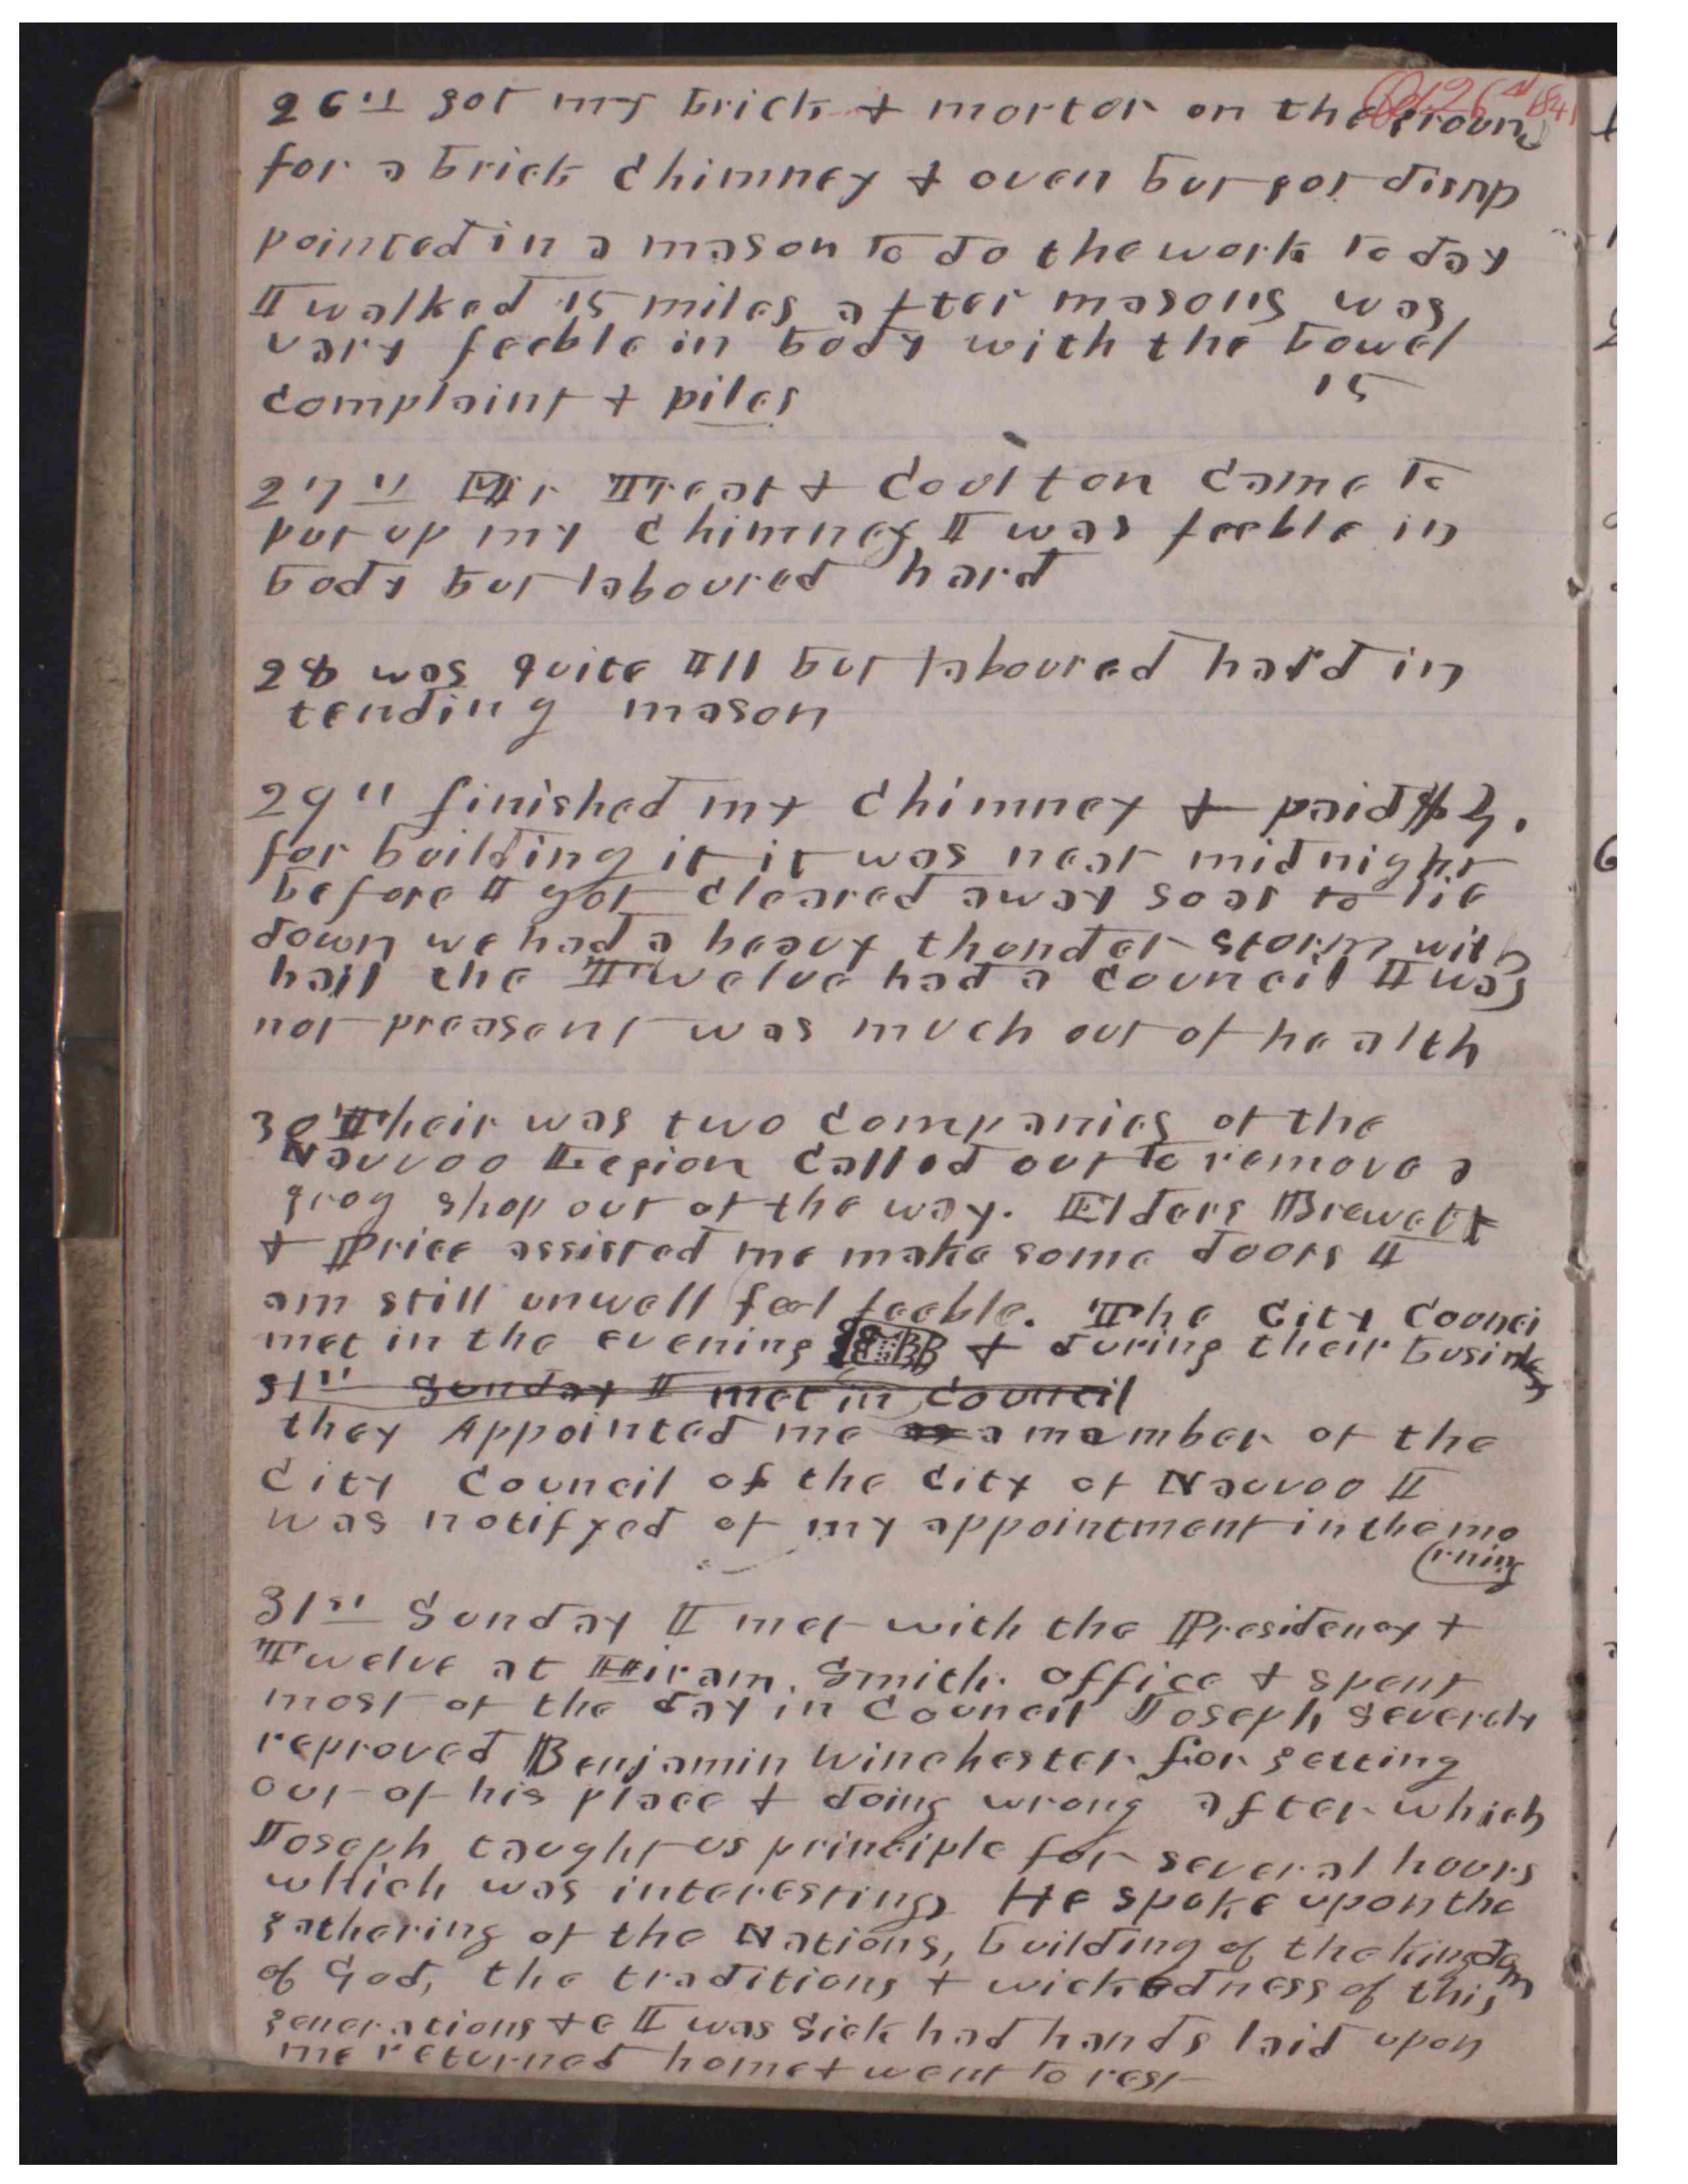 Oct 26th 1841
26th got my brick & mortar on the ground
for a brick chimney & oven but got disap
pointed in a mason to do the work to day
I walked 15 miles after masons was
vary feeble in body with the bowel
complaint & piles 15
27th Mr Treat & Coulton came to
put up my chimney, I was feeble in
body but laboured hard
28 was quite Ill but laboured hard in
tending mason
29th finished my chimney & paid $3.
for building it it was near midnight
before I got cleared away so as to lie
down we had a heavy thonder storm with
hail the Twelve had a council I was
not preasent was much out of health
30th Their was two companies of the
Nauvoo Legion called out to remove a
grog shop out of the way. Elders Brewett
& Price assisted me make some doors I
am still unwell feel feeble. The City Counci
met in the evening & during their business
31st Sunday I met in Council
they Appointed me as a member of the
City Council of the City of Nauvoo I
was notifyed of my appointment in the mo
(rning
31st Sunday I met with the Presidency &
Twelve at Hiram. Smith. office & spent
most of the day in Council Joseph severely
reproved Benjamin Winchester for getting
out of his place & doing wrong after which
Joseph taught us principle for several hours
which was interesting He spoke upon the
gathering of the Nations, building of the kingdom
of God, the traditions & wickedness of this
generations &c I was sick had hands laid upon
me returned home & went to rest